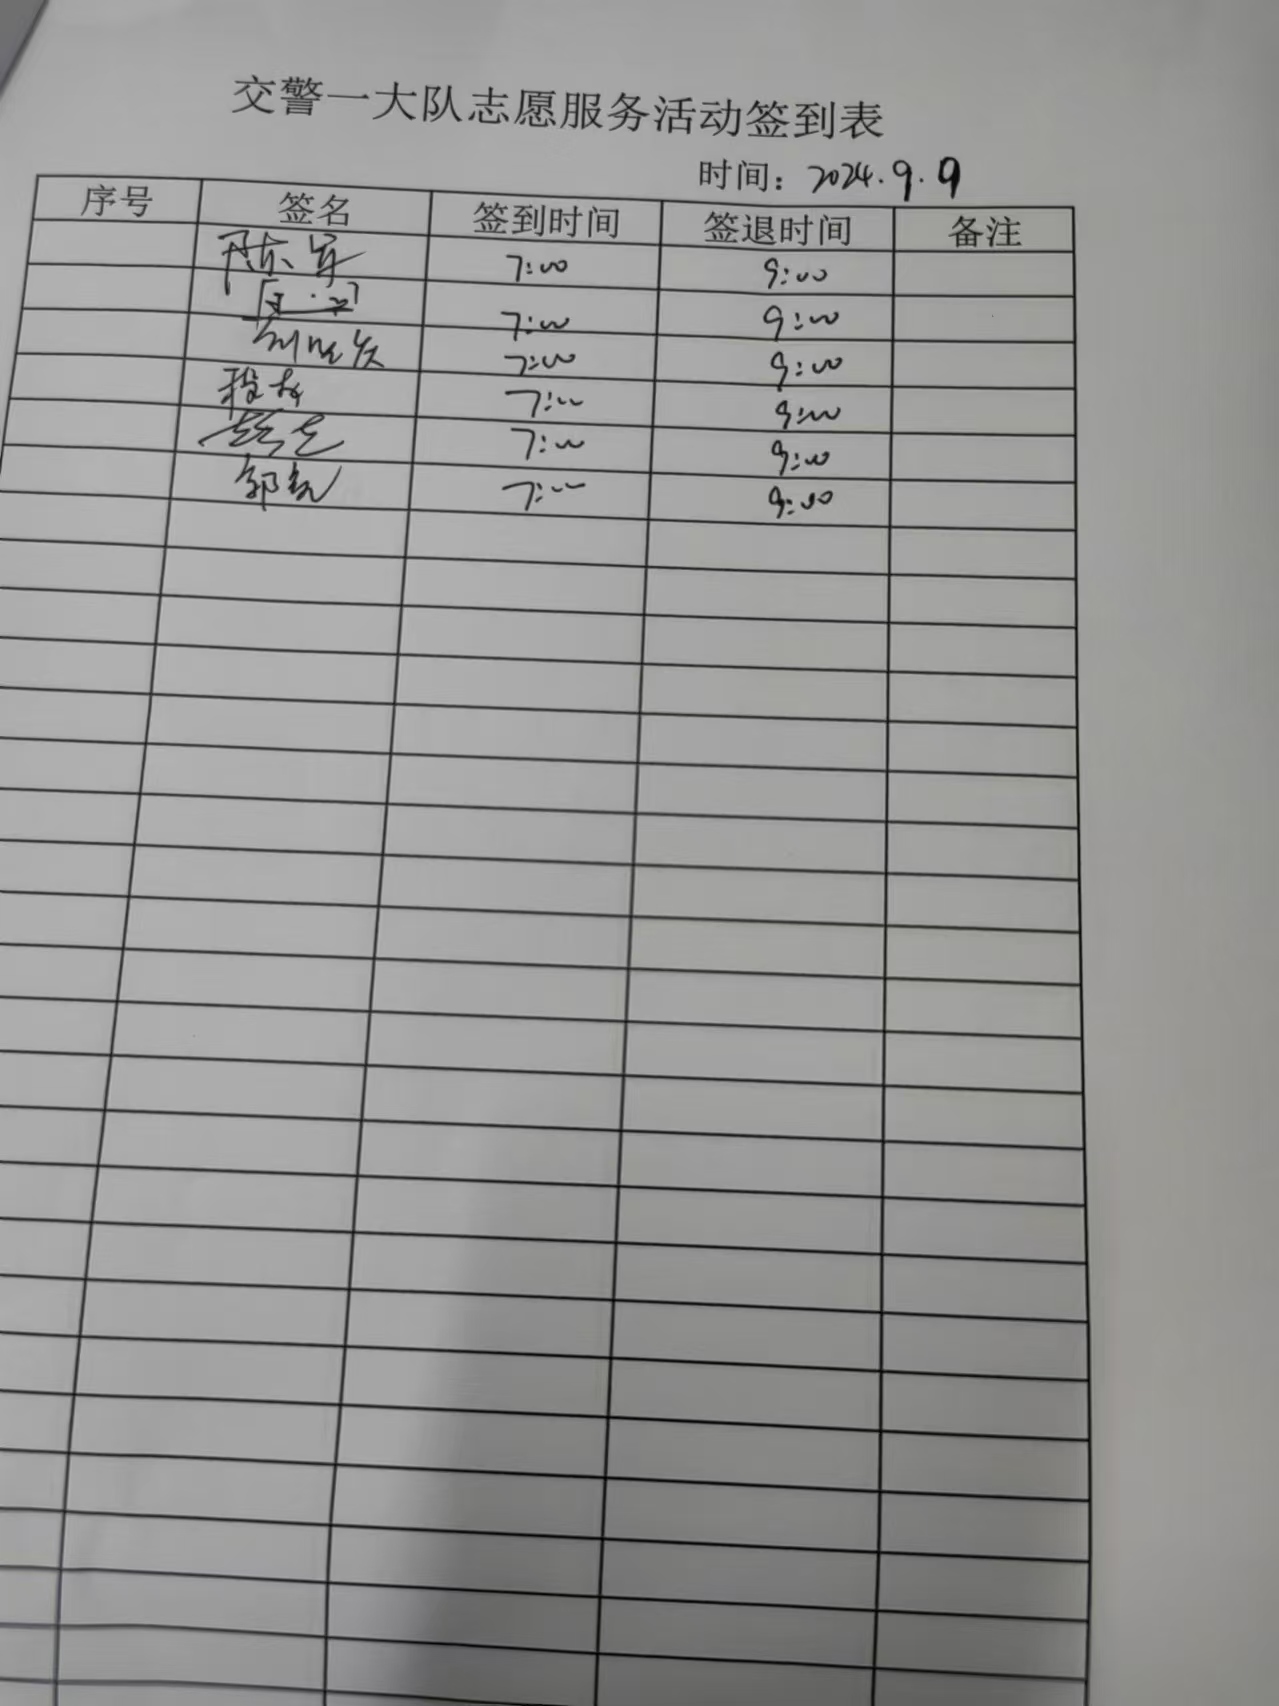 交警一大队志愿服务活动签到表
时间：2024.9.9
序号 签名 签到时间 签退时间 备注
陈军 7:00 9:00
7:00 9:00
7:00 9:00
7:00 9:00
7:00 9:00
7:00 9:00